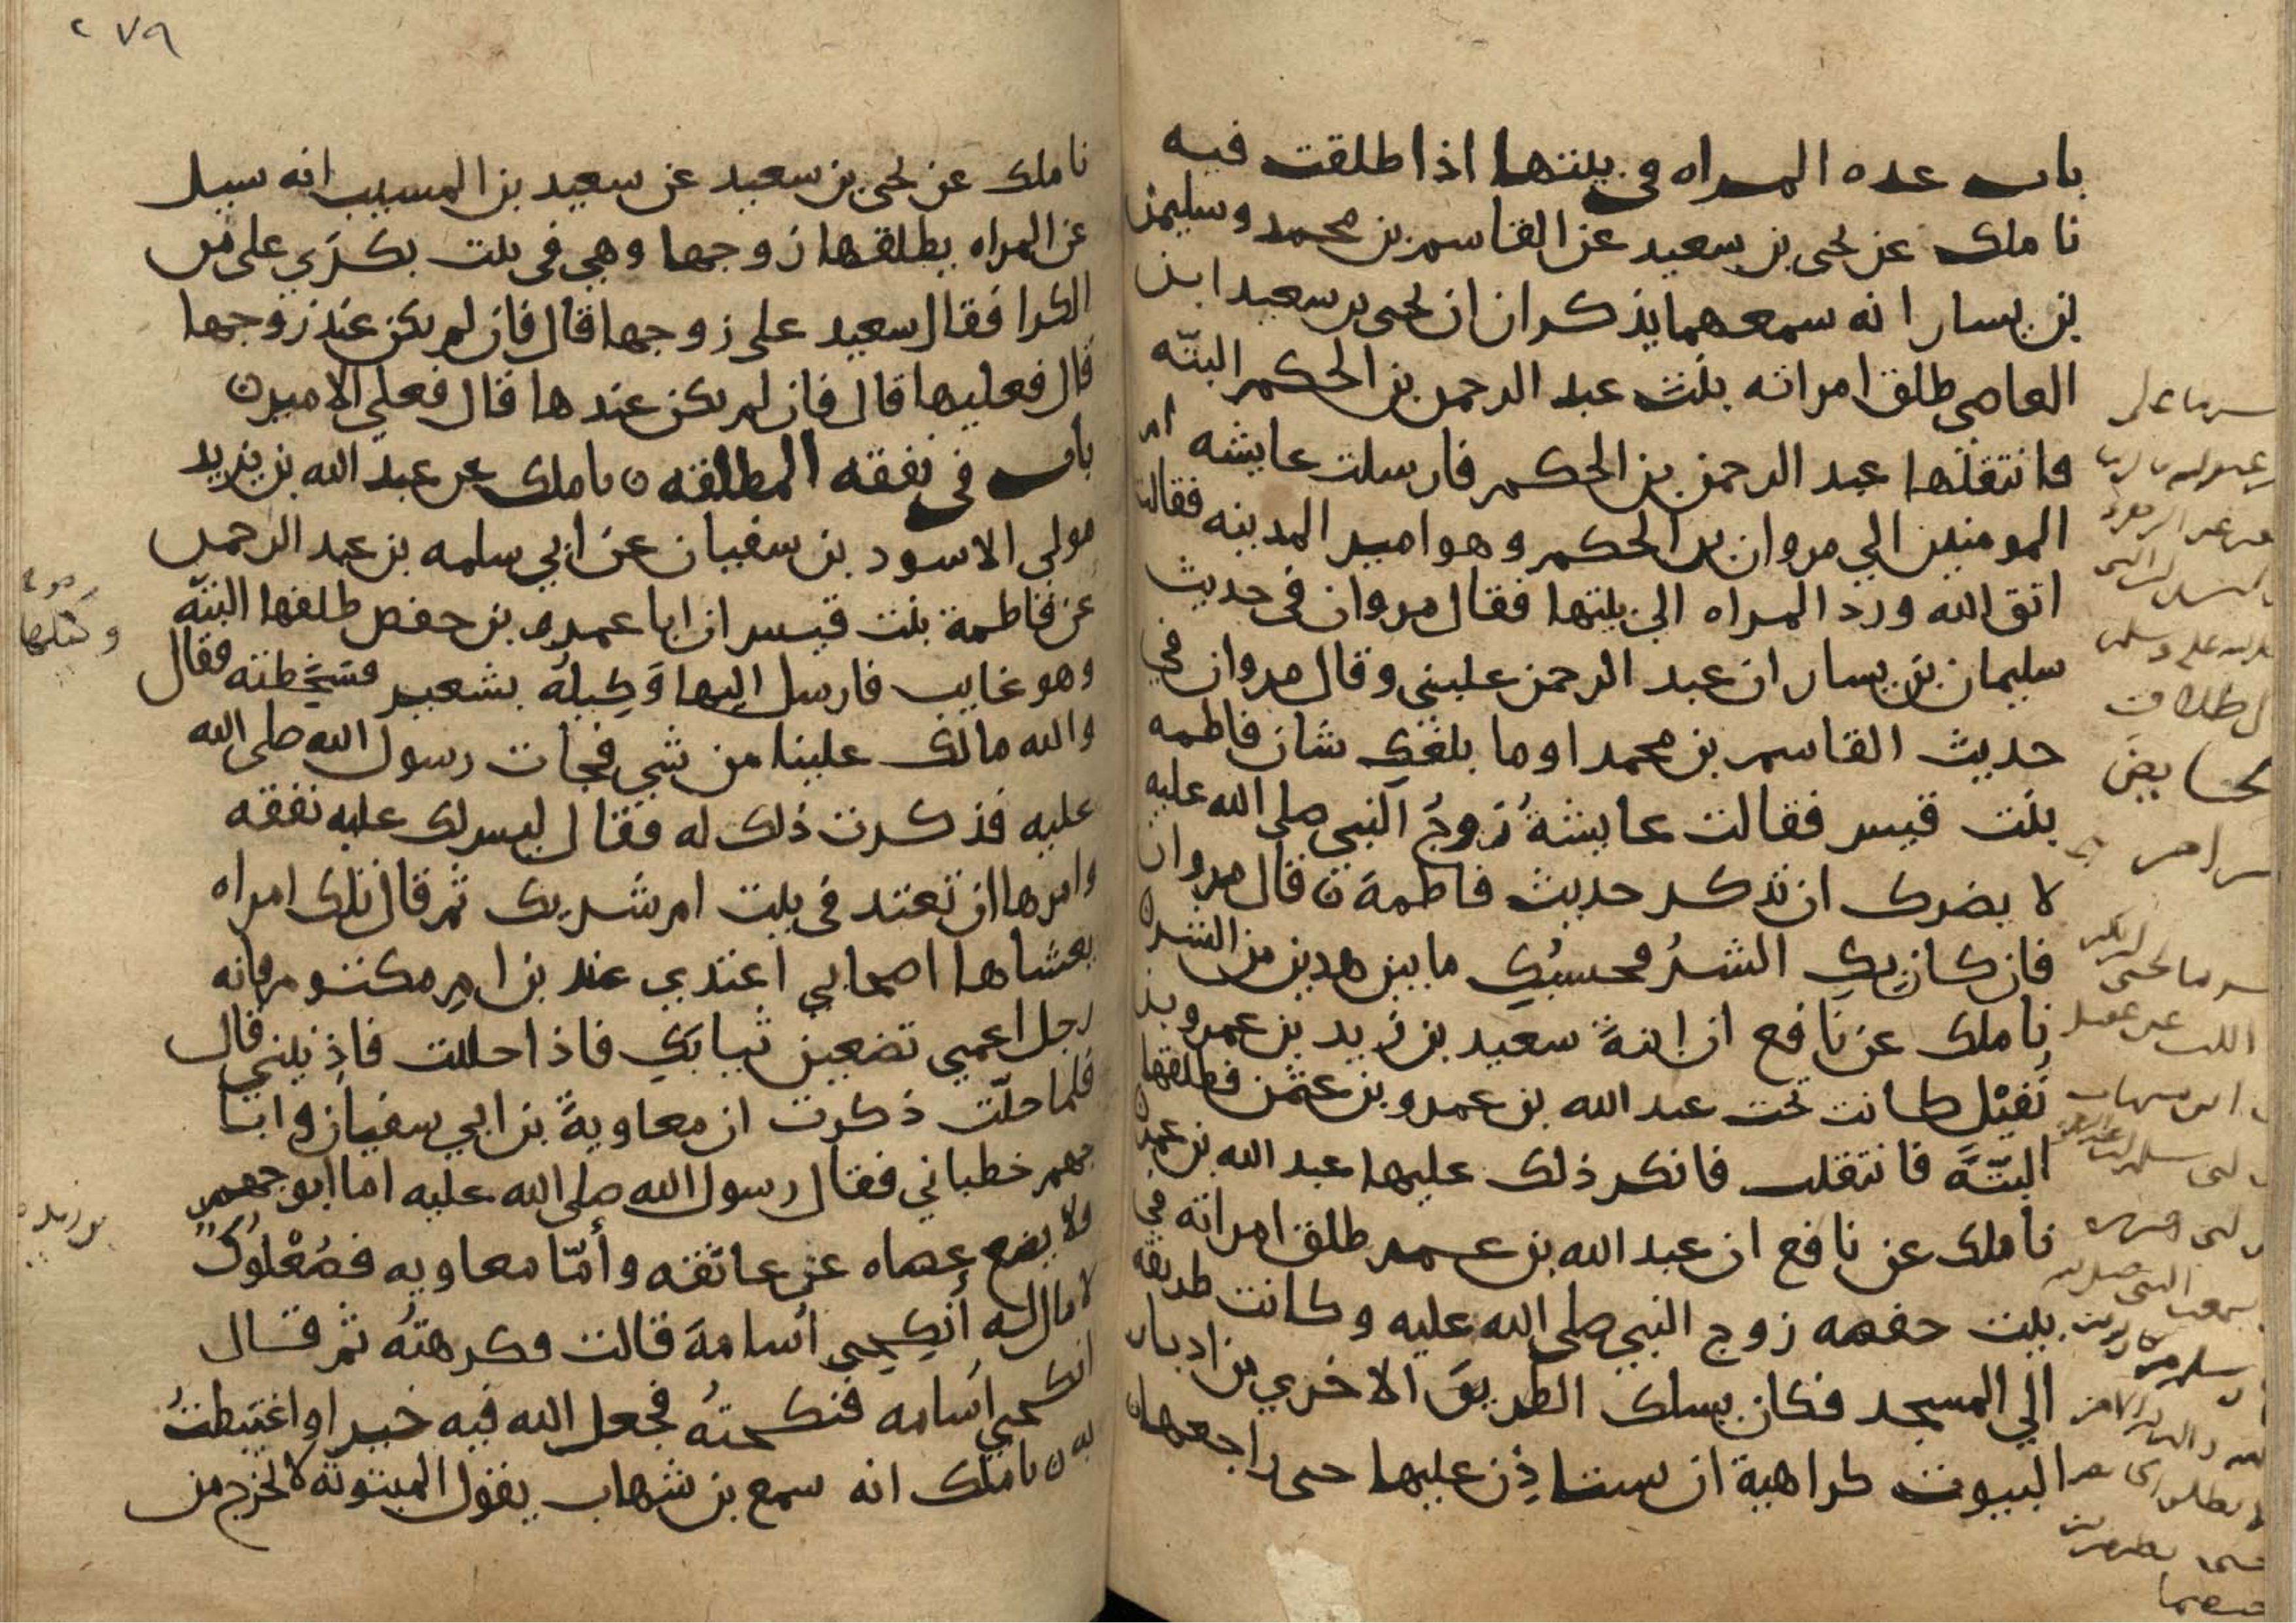 باب عده المراه في بيتها اذا طلقت فيه
نا ملك عن يحيى بن سعيد عن القاسم بن محمد وسليمن
بن يسار انه سمعهما يذكران ان يحيى بن سعيد ابن
العاصي طلق امراته بنت عبد الرحمن بن الحكم البتّه
فانتقلها عبد الرحمن بن الحكم فارسلت عايشه ام
المومنين الي مروان بن الحكم وهو امير المدينه فقالت
اتق الله ورد المراه الي بيتها فقال مروان في حديث
سليمان بن يسار ان عبد الرحمن غلبني وقال مروان في
حديث القاسم بن محمد اوما بلغكِ شان فاطمه
بنت قيس فقالت عايشةُ زوجُ النبي صلى الله عليه
لا يضرك ان تذكر حديث فاطمة ن قال مروان
فان كان بكِ الشرُ فحسبُكِ ما بين هذين من الشر ه
نا ملك عن نافع ان ابنةَ سعيد بن زيد بن عمرو بن
نُفَيْل كانت تحت عبد الله بن عمرو بن عثمن فطلقها
البتّةَ فانتقلت فانكر ذلك عليها عبد الله بن عمر ه
نا ملك عن نافع ان عبد الله بن عمر طلق امراته في
بيت حفصه زوج النبي صلى الله عليه وكانت طريقه
الي المسجد فكان يسلك الطريقَ الاخري من ادبار
البيوت كراهية ان يستاذِن عليها حتى راجعها ن
لا طلاق
الحايض
٢٧٩
نا ملك عن يحيى بن سعيد عن سعيد بن المسيب انه سيل
عن المراه يطلقها زوجها وهي في بيت بكرَي على من
الكرا فقال سعيد على زوجها قال فان لم يكن عند زوجها
قال فعليها قال فان لم يكن عندها قال فعلي الامير ن
باب في نفقه المطلقه ن نا ملك عن عبد الله بن يزيد
مولى الاسود بن سفيان عن ابي سلمه بن عبد الرحمن
عن فاطمة بنت قيس ان ابا عمرو بن حفص طلقها البتّه
وهو غايب فارسل اليها وَكِيلهُ بشعير فسَخِطته فقال
والله مالك علينا من شي فجات رسول الله صلى الله
عليه فذكرت ذلك له فقال ليس لك عليه نفقه
وامرها ان تعتد في بيت ام شريك ثم قال تلك امراه
يغشاها اصحابي اعتدي عند بن ام مكتوم فانه
رجل اعمي تضعين ثيابَكِ فاذا احللت فاذِنيني قال
فلما حلّت ذكرت ان معاويةَ بن ابي سفيان وابا
جهم خطباني فقال رسول الله صلى الله عليه اما ابو جهم
فلا يضع عصاه عن عاتقه وأمّا معاويه فصُعْلوكٌ
لا مال له أنكِحِي أسامةَ قالت فكرهتُه ثم قال
انكحي اسامه فنكحتُه فجعل الله فيه خيرا واغتبطتُ
به ن نا ملك انه سمع بن شهاب يقول المبتوته لا تخرج من